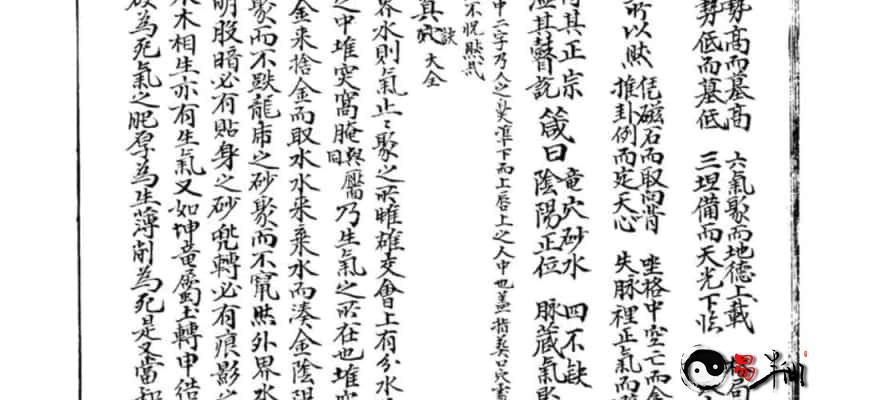 勢高而墓高 六氣聚而地德上載
勢低而墓低 三坦備而天光下臨
所以然 凭磁石而取向背 坐格中空亡而
推卦例而定天心 失脉裡正氣而
其正宗 箴曰 竜穴砂水 四不缺
其瞽説 陰陽正位 脉藏氣聚
中二字乃人之 準下而上唇上之人中也盖指
不悦然哉
真穴 訣大全
界水則氣止〻聚之所雌雄交會上有分水
之中堆突窩腌與靨同乃生氣之所在也堆
金来捨金而取水水来乘水而湊金陰陽
聚而不跌龍虎之砂聚而不竄然外界水
明股暗必有貼身之砂兜轉必有痕影之
水木相生亦有生氣又如坤竜屬土轉申结
為死氣之肥厚為生薄削為死是又當
楊